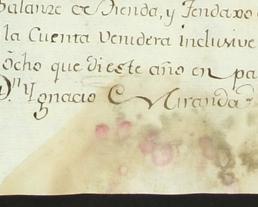 Balanze de Tienda, y
la Cuenta Venidera inclusive
ocho que di este año en pa
Dn Ygnacio Miranda